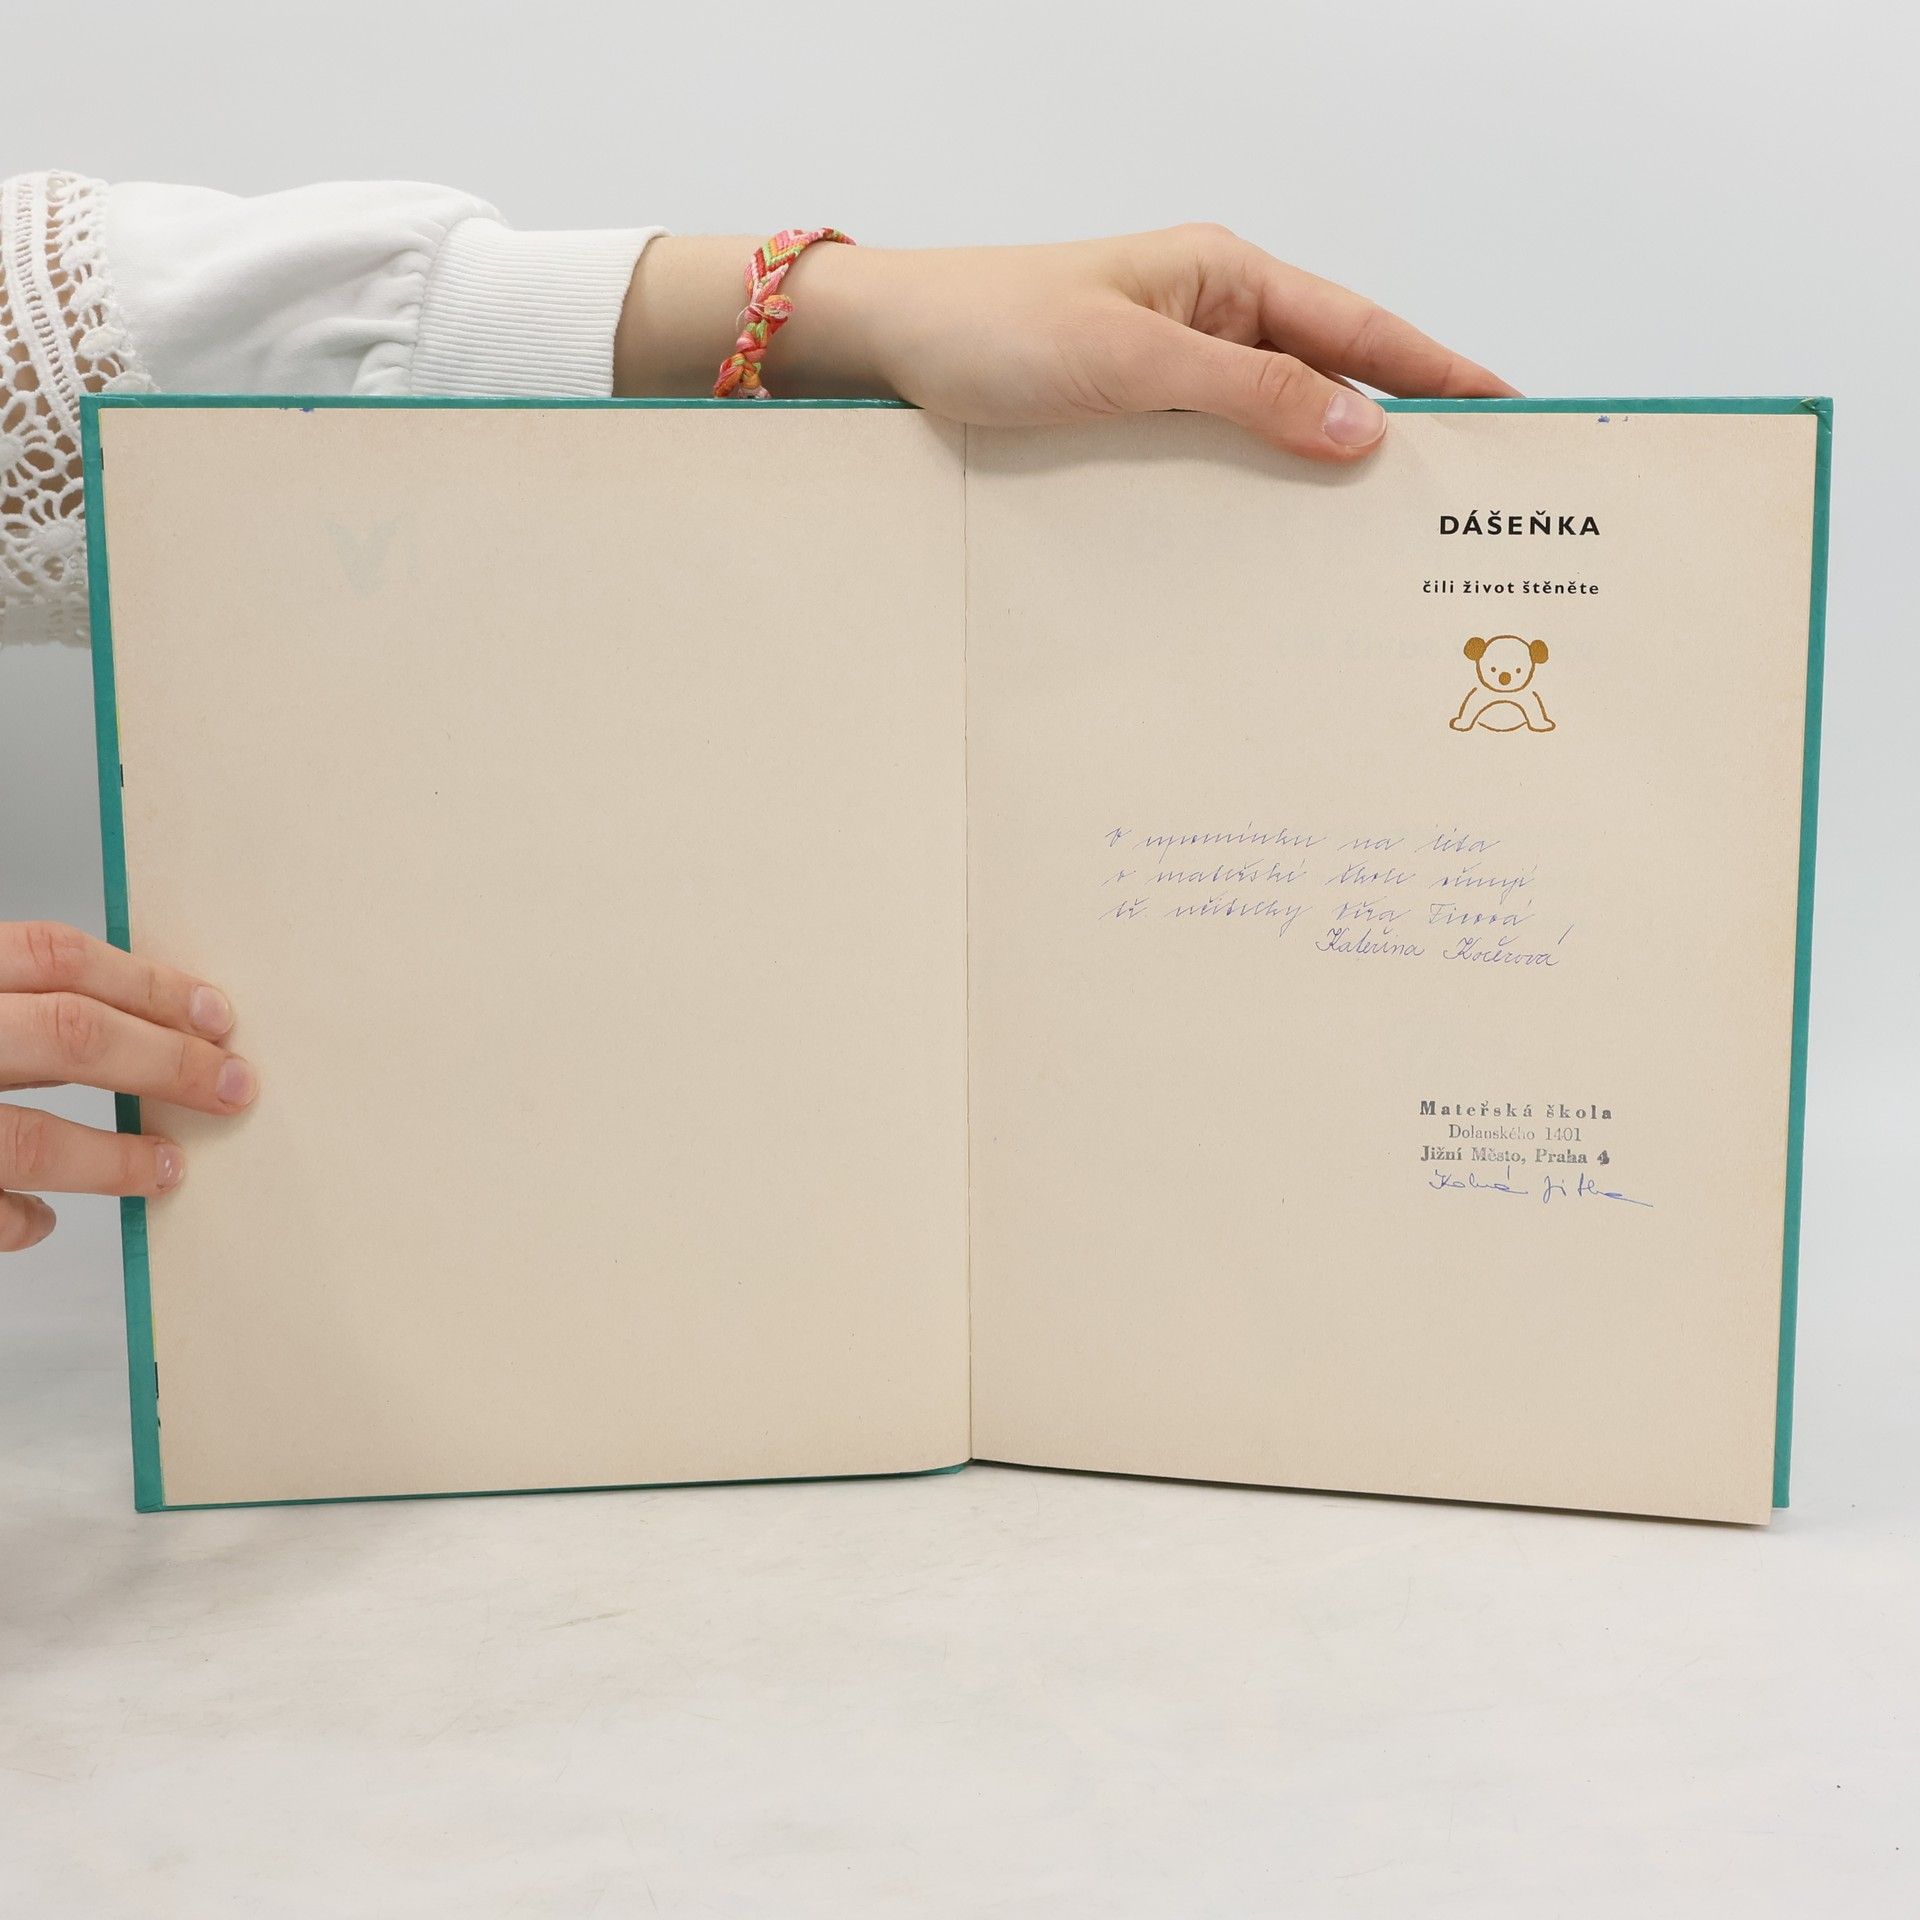 DÁŠEŇKA
čili život štěněte
V upomínku na léta
v mateřské škole věnují
tř. učitelky Věra
Kateřina Kočerová
Mateřská škola
Dolanského 1401
Jižní Město, Praha 4
Jitka